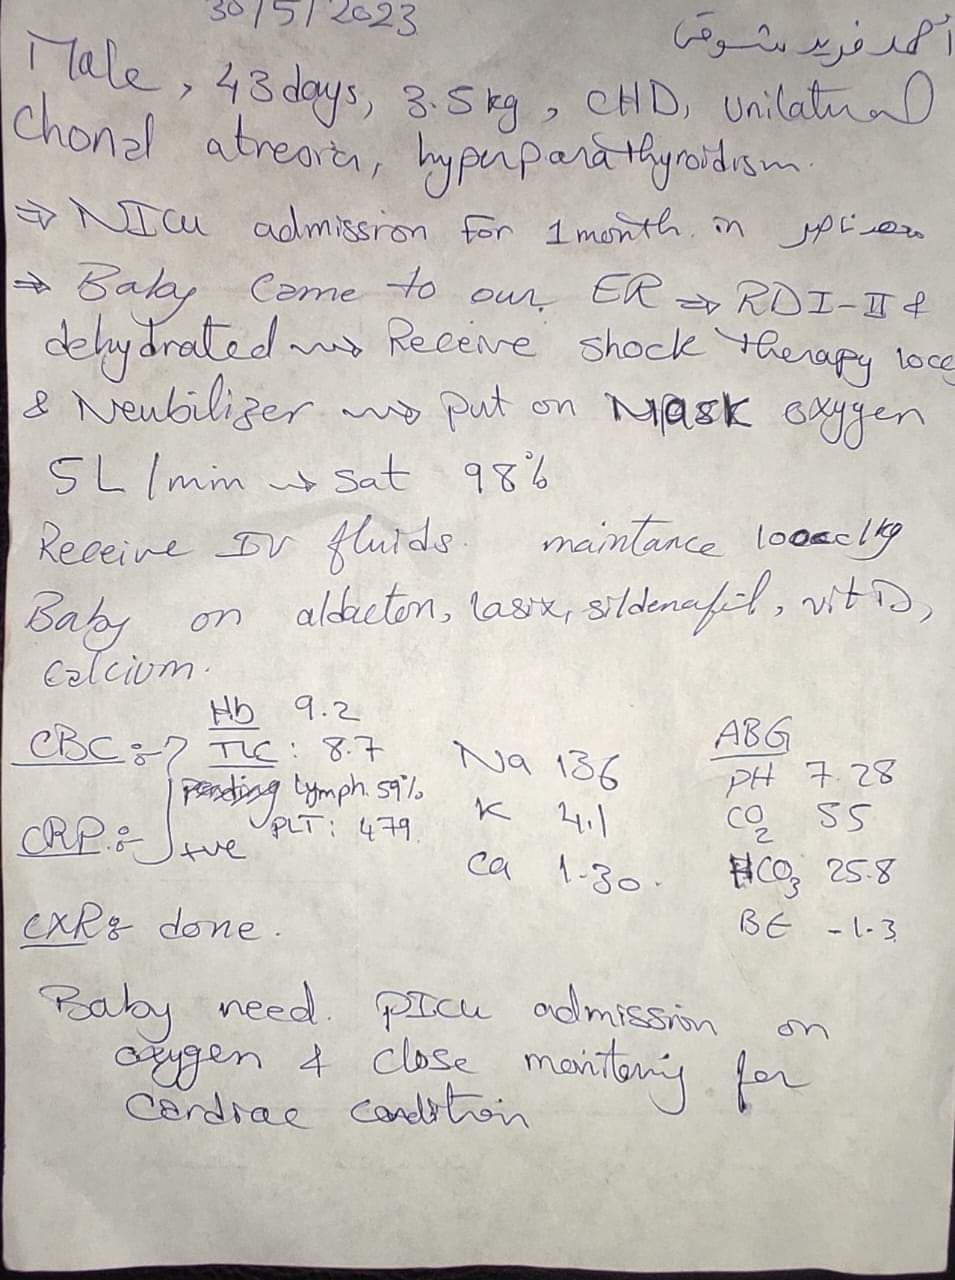 30/5/2023
أحمد فريد شوقى
Male, 43 days, 3.5 kg, CHD, unilateral
Chonal atresia, hyperparathyroidism.
⇒ NICU admission for 1 month in
⇒ Baby Came to our ER ⇒ RDI-II &
dehydrated → Receive shock therapy 10cc
& Neubilizer → put on Mask oxygen
5L/min → sat 98%
Receive IV fluids. maintance 100cc/kg
Baby on aldacton, lasix, sildenafil, vit D,
Calcium.
CBC:- Hb 9.2
TLC: 8.7
pending Lymph. 59%
PLT: 479
CRP:- +ve
Na 136
K 4.1
Ca 1.30.
ABG
PH 7.28
CO2 55
HCO3 25.8
BE -1.3
CXR: done.
Baby need. PICU admission on
oxygen & close monitoring for
Cardiac condition